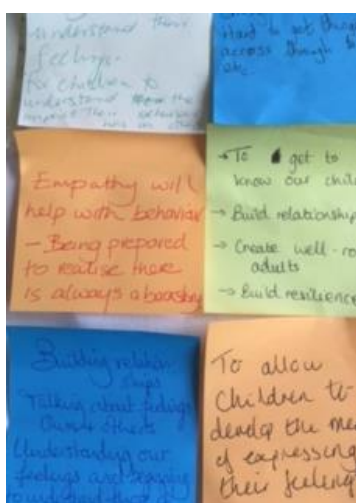 understand their
feelings.
For children to
understand the
impact their behaviour
has on others
Hard to get things
across through
etc.
Empathy will
help with behavior
- Being prepared
to realise there
is always a
→ To get to
know our chil
→ Build relationship
→ Create well-ro
adults
→ Build resilience
Building relation
ships
Talking about feelings
Ours + others
Understanding our
feelings and
To allow
children to
develop the me
of expressing
their feeling